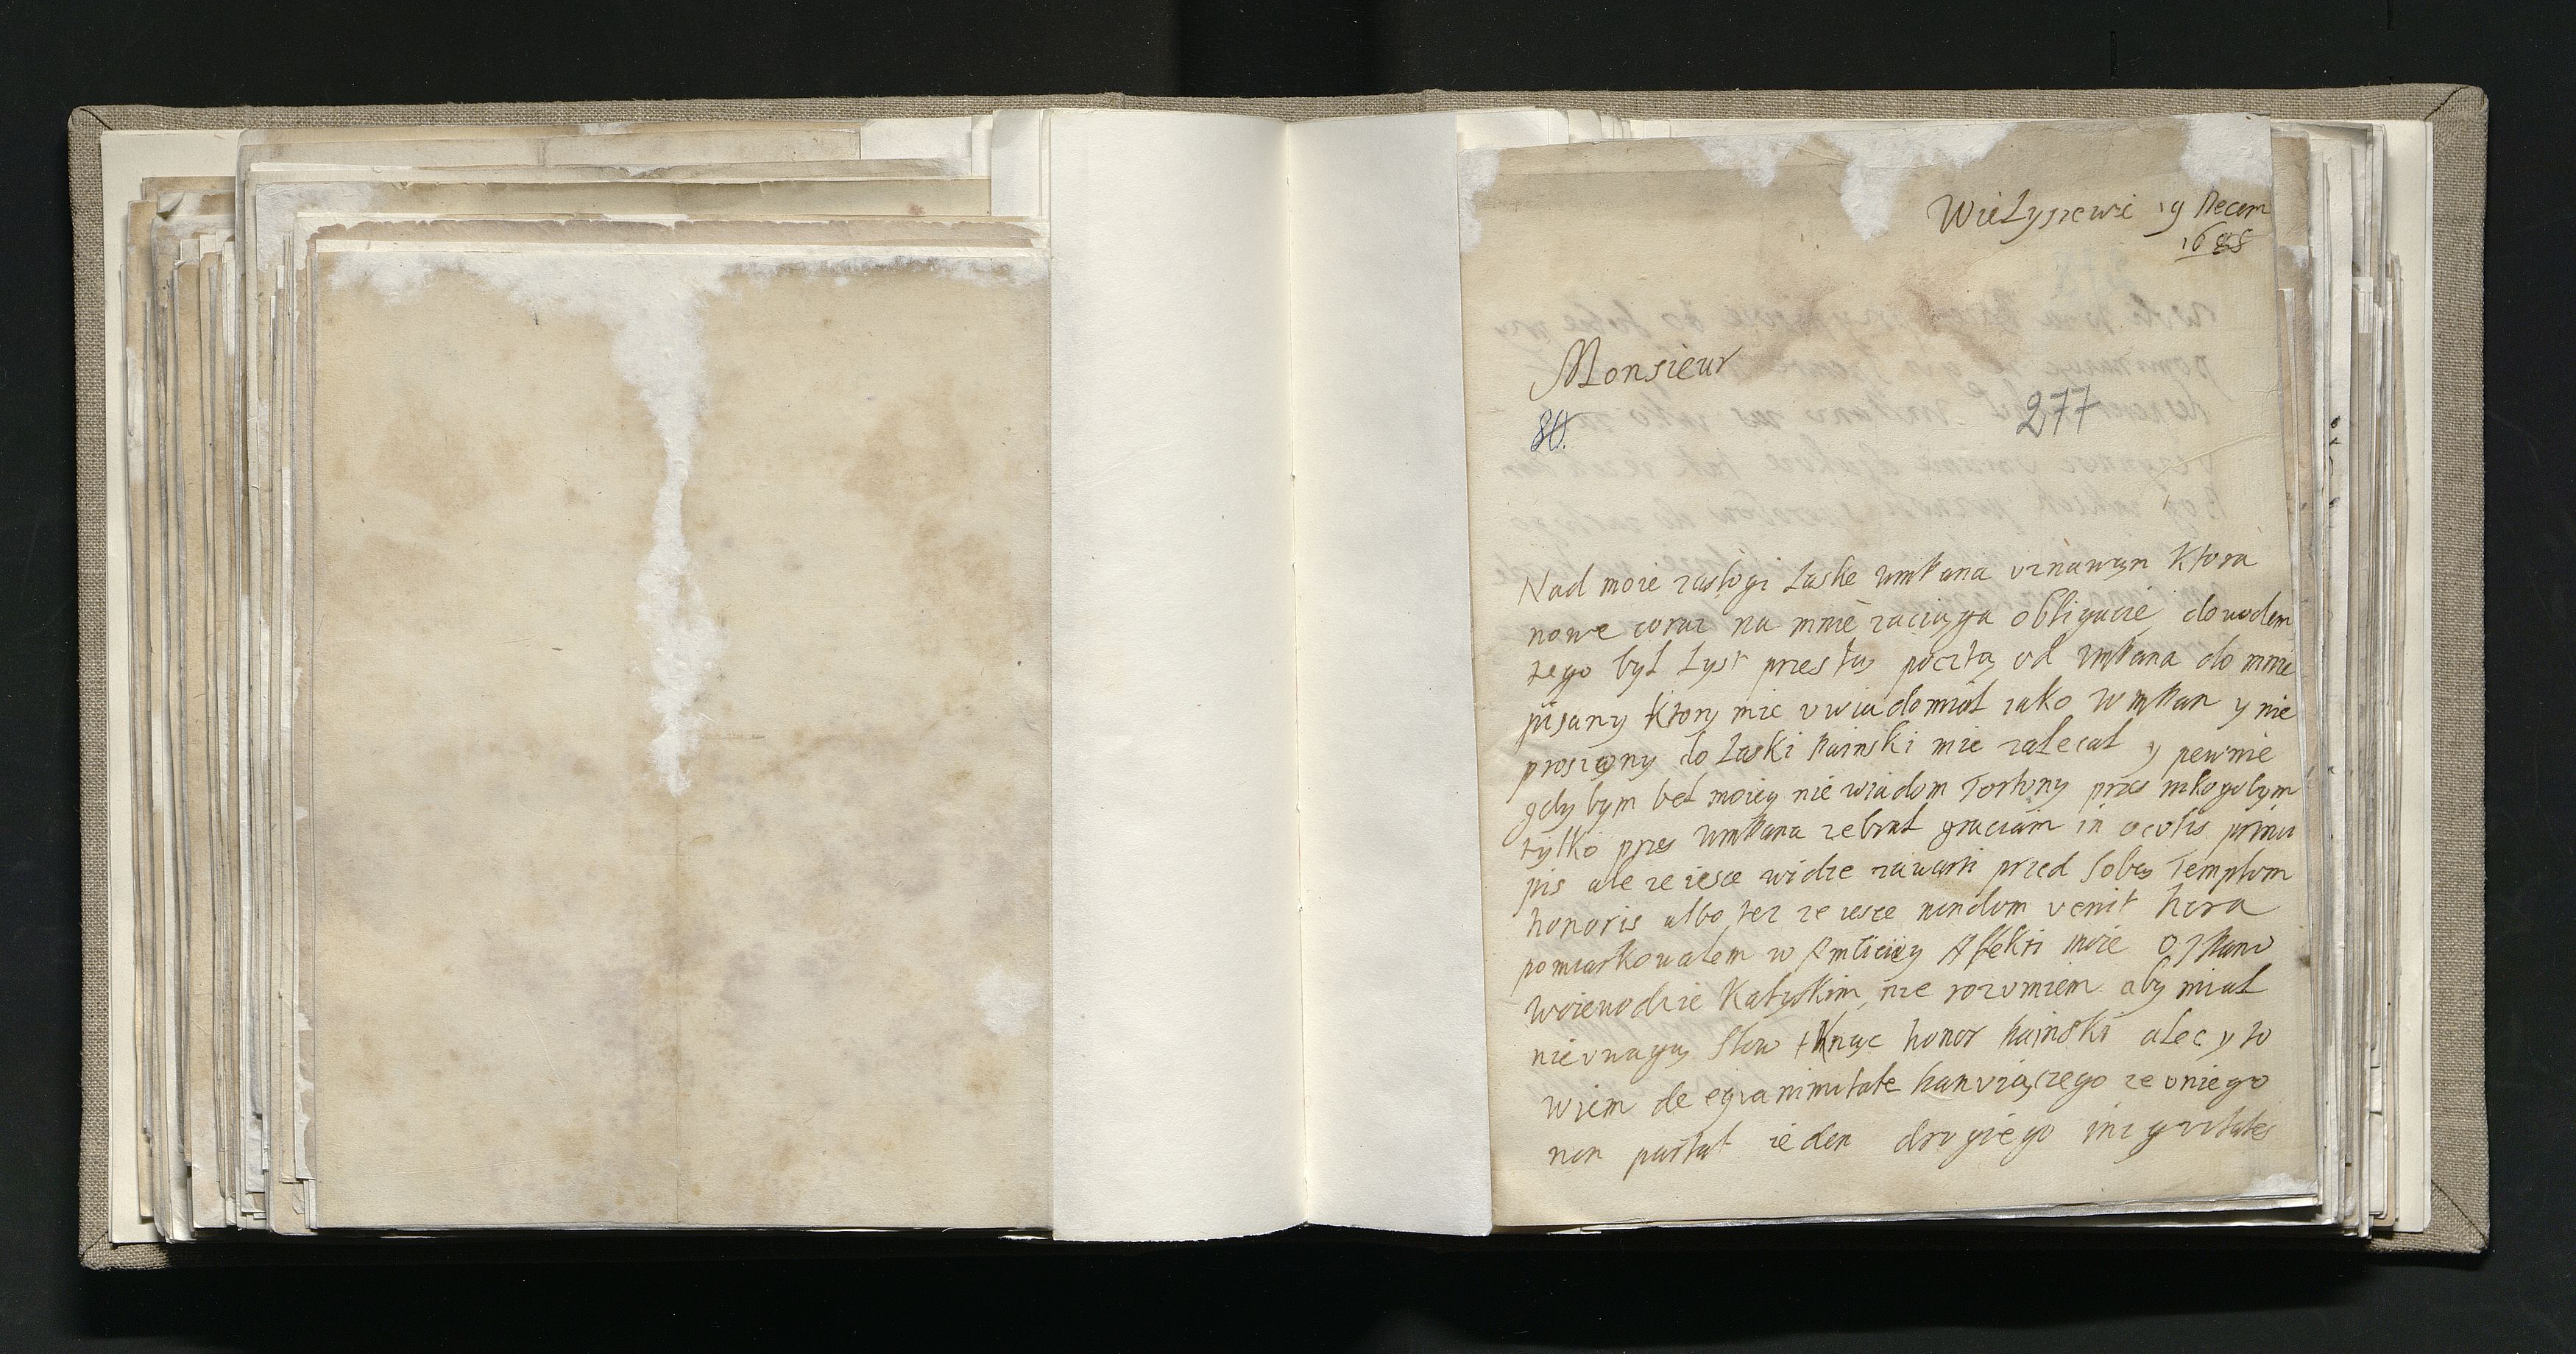 19 Decem
1688
Monsieur
80.
277
Nad moie zasługi Łaske wmPana uznawam Ktora
nowe coraz na mnie zaciąga obligacie, dowodem
tego był Lyst przes tą pocztą od wmPana do mnie
pisany Ktory mie uwiadomiał iako WmPan y nie
proszony do Łaski Painski mie zalecał y pewnie
gdy bym beł moiey nie wiadom Fortuny przes nikogo bym
tylko przes wmPana zebrał graciam in oculis princi
pis ale ze iesce widze zawarti przed Sobą Templum
honoris albo tez ze iesce nondum venit hora
pomiarkowałem w Afekti moie
Woiewodzie nie rozumiem aby miał
nieuwagą Słow tknąc honor Painski alec y to
wiem de
non ieden drugiego